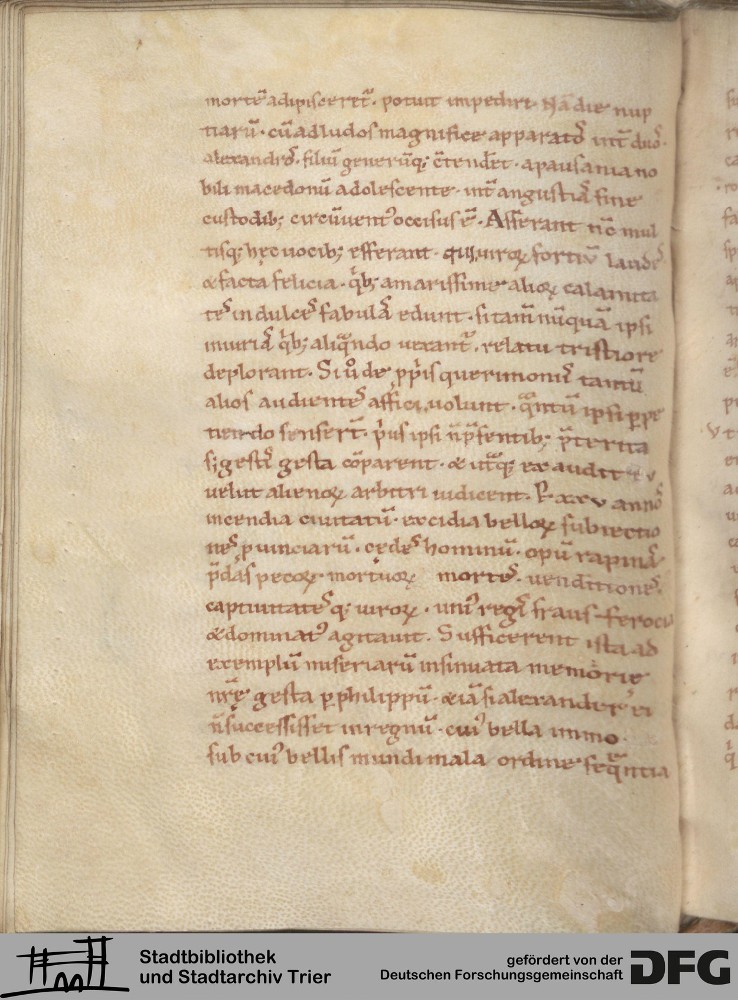 mortē adipisceret᷑. potuit impediri. Nā die nup
tiarū. cū ad ludos magnifice apparatos int᷑ duos.
alexandros. filiū generūq; c̄tenderet. a pausania no
bili macedonū adolescente. int᷑ angustias sine
custodib; circūuent᷒ occisus ē. Asserant nc̄ mul
tisq; hęc uocib; efferant. quasi uiroꝝ fortiū laudes
& facta felicia. qͥb; amarissime alioꝝ calamita
tes in dulces fabulas edunt. si tam̄ nūquā ipsi
iniurias qͥb; aliqͣndo uexant᷑. relatu tristiore
deplorant. Si ū de ꝓpͥis querimoniis tantū
alios audientes affici uolunt. qͣntū ipsi ꝑpe
tiendo senserunt. pͥus ipsi n̄ p̄sentib; p̄terita
s; gestis gesta cōparent. & utͣq; ex auditu
uelut alienoꝝ arbitri iudicent. P xxv annos
incendia ciuitatū. excidia belloꝝ subiectio
nes ꝓuinciarū. cędes hominū. opū rapinas
p̄das pecoꝝ. mortuoꝝ mortes. uenditiones.
captiuitatesq; uiroꝝ. uni᷒ regis fraus ferocia
& dominat᷒ agitauit. Sufficerent ista ad
exemplū miseriarū insinuata memorie
nr̄ę gesta ꝑ philippū. & iā si alexander ei
n̄ successisset in regnū. cui᷒ bella immo.
sub cui᷒ bellis mundi mala ordine seqͣntia
Stadtbibliothek
und Stadtarchiv Trier
gefördert von der
Deutschen Forschungsgemeinschaft
DFG